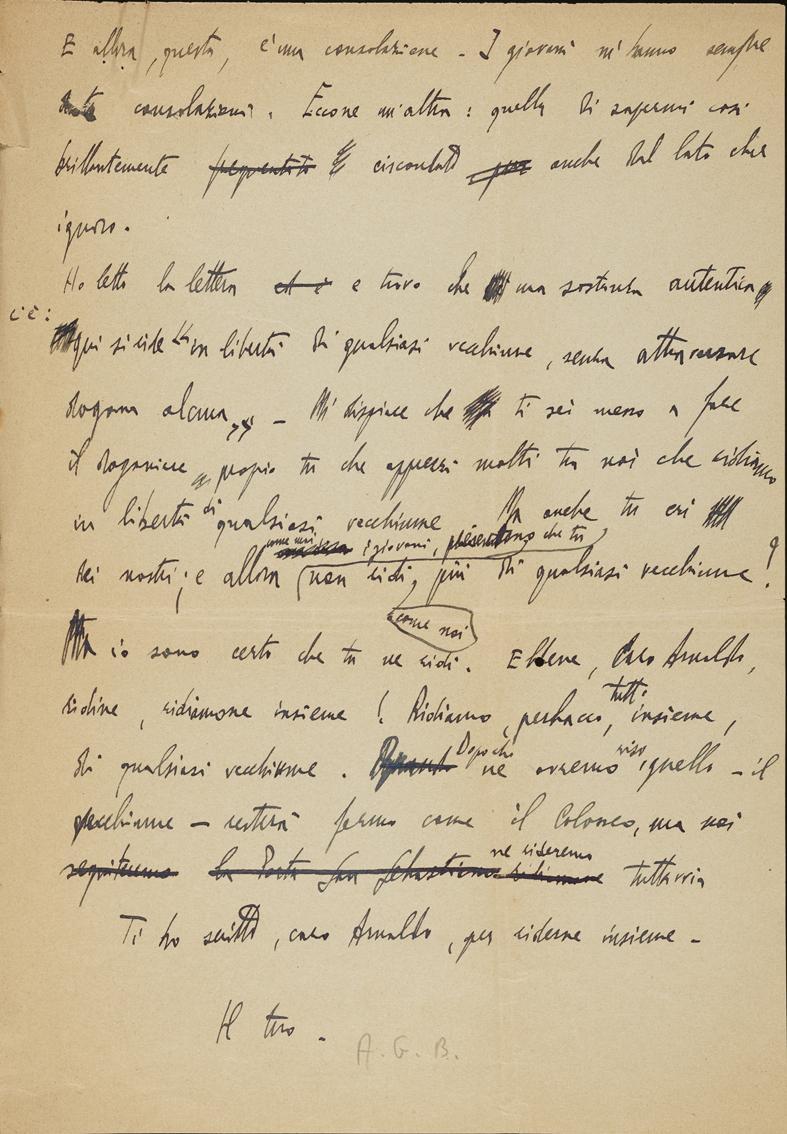 E allora, questa, è una consolazione – I giovani m'hanno sempre
dato consolazioni. Eccone un'altra: quella di sapermi così
brillantemente frequentato e circondato per anche dal lato che
ignoro.
Ho letto la lettera ch è e trovo che una sostanza autentica
c'è:
qui si ride "in libertà di qualsiasi vecchiume, senza attraversare
dogana alcuna" – Mi dispiace che ti sei messo a fare
il doganiere proprio tu che apprezzi molti tra noi che ridiamo
in libertà di qualsiasi vecchiume Ma anche tu eri
come noi i giovani, che tu
dei nostri; e allora non ridi, più di qualsiasi vecchiume!
come noi
Ma io sono certo che tu ne ridi. Ebbene, Caro Arnaldo,
ridine, ridiamone insieme! Ridiamo, perbacco, tutti insieme,
di qualsiasi vecchiume. Dopo che ne avremo riso, quello – il
vecchiume – resterà fermo come il Colosseo, ma noi
seguiteremo la Porta San Sebastiano ridiamone ne rideremo tuttavia
Ti ho scritto, caro Arnaldo, per riderne insieme –
Il tuo.
A. G. B.